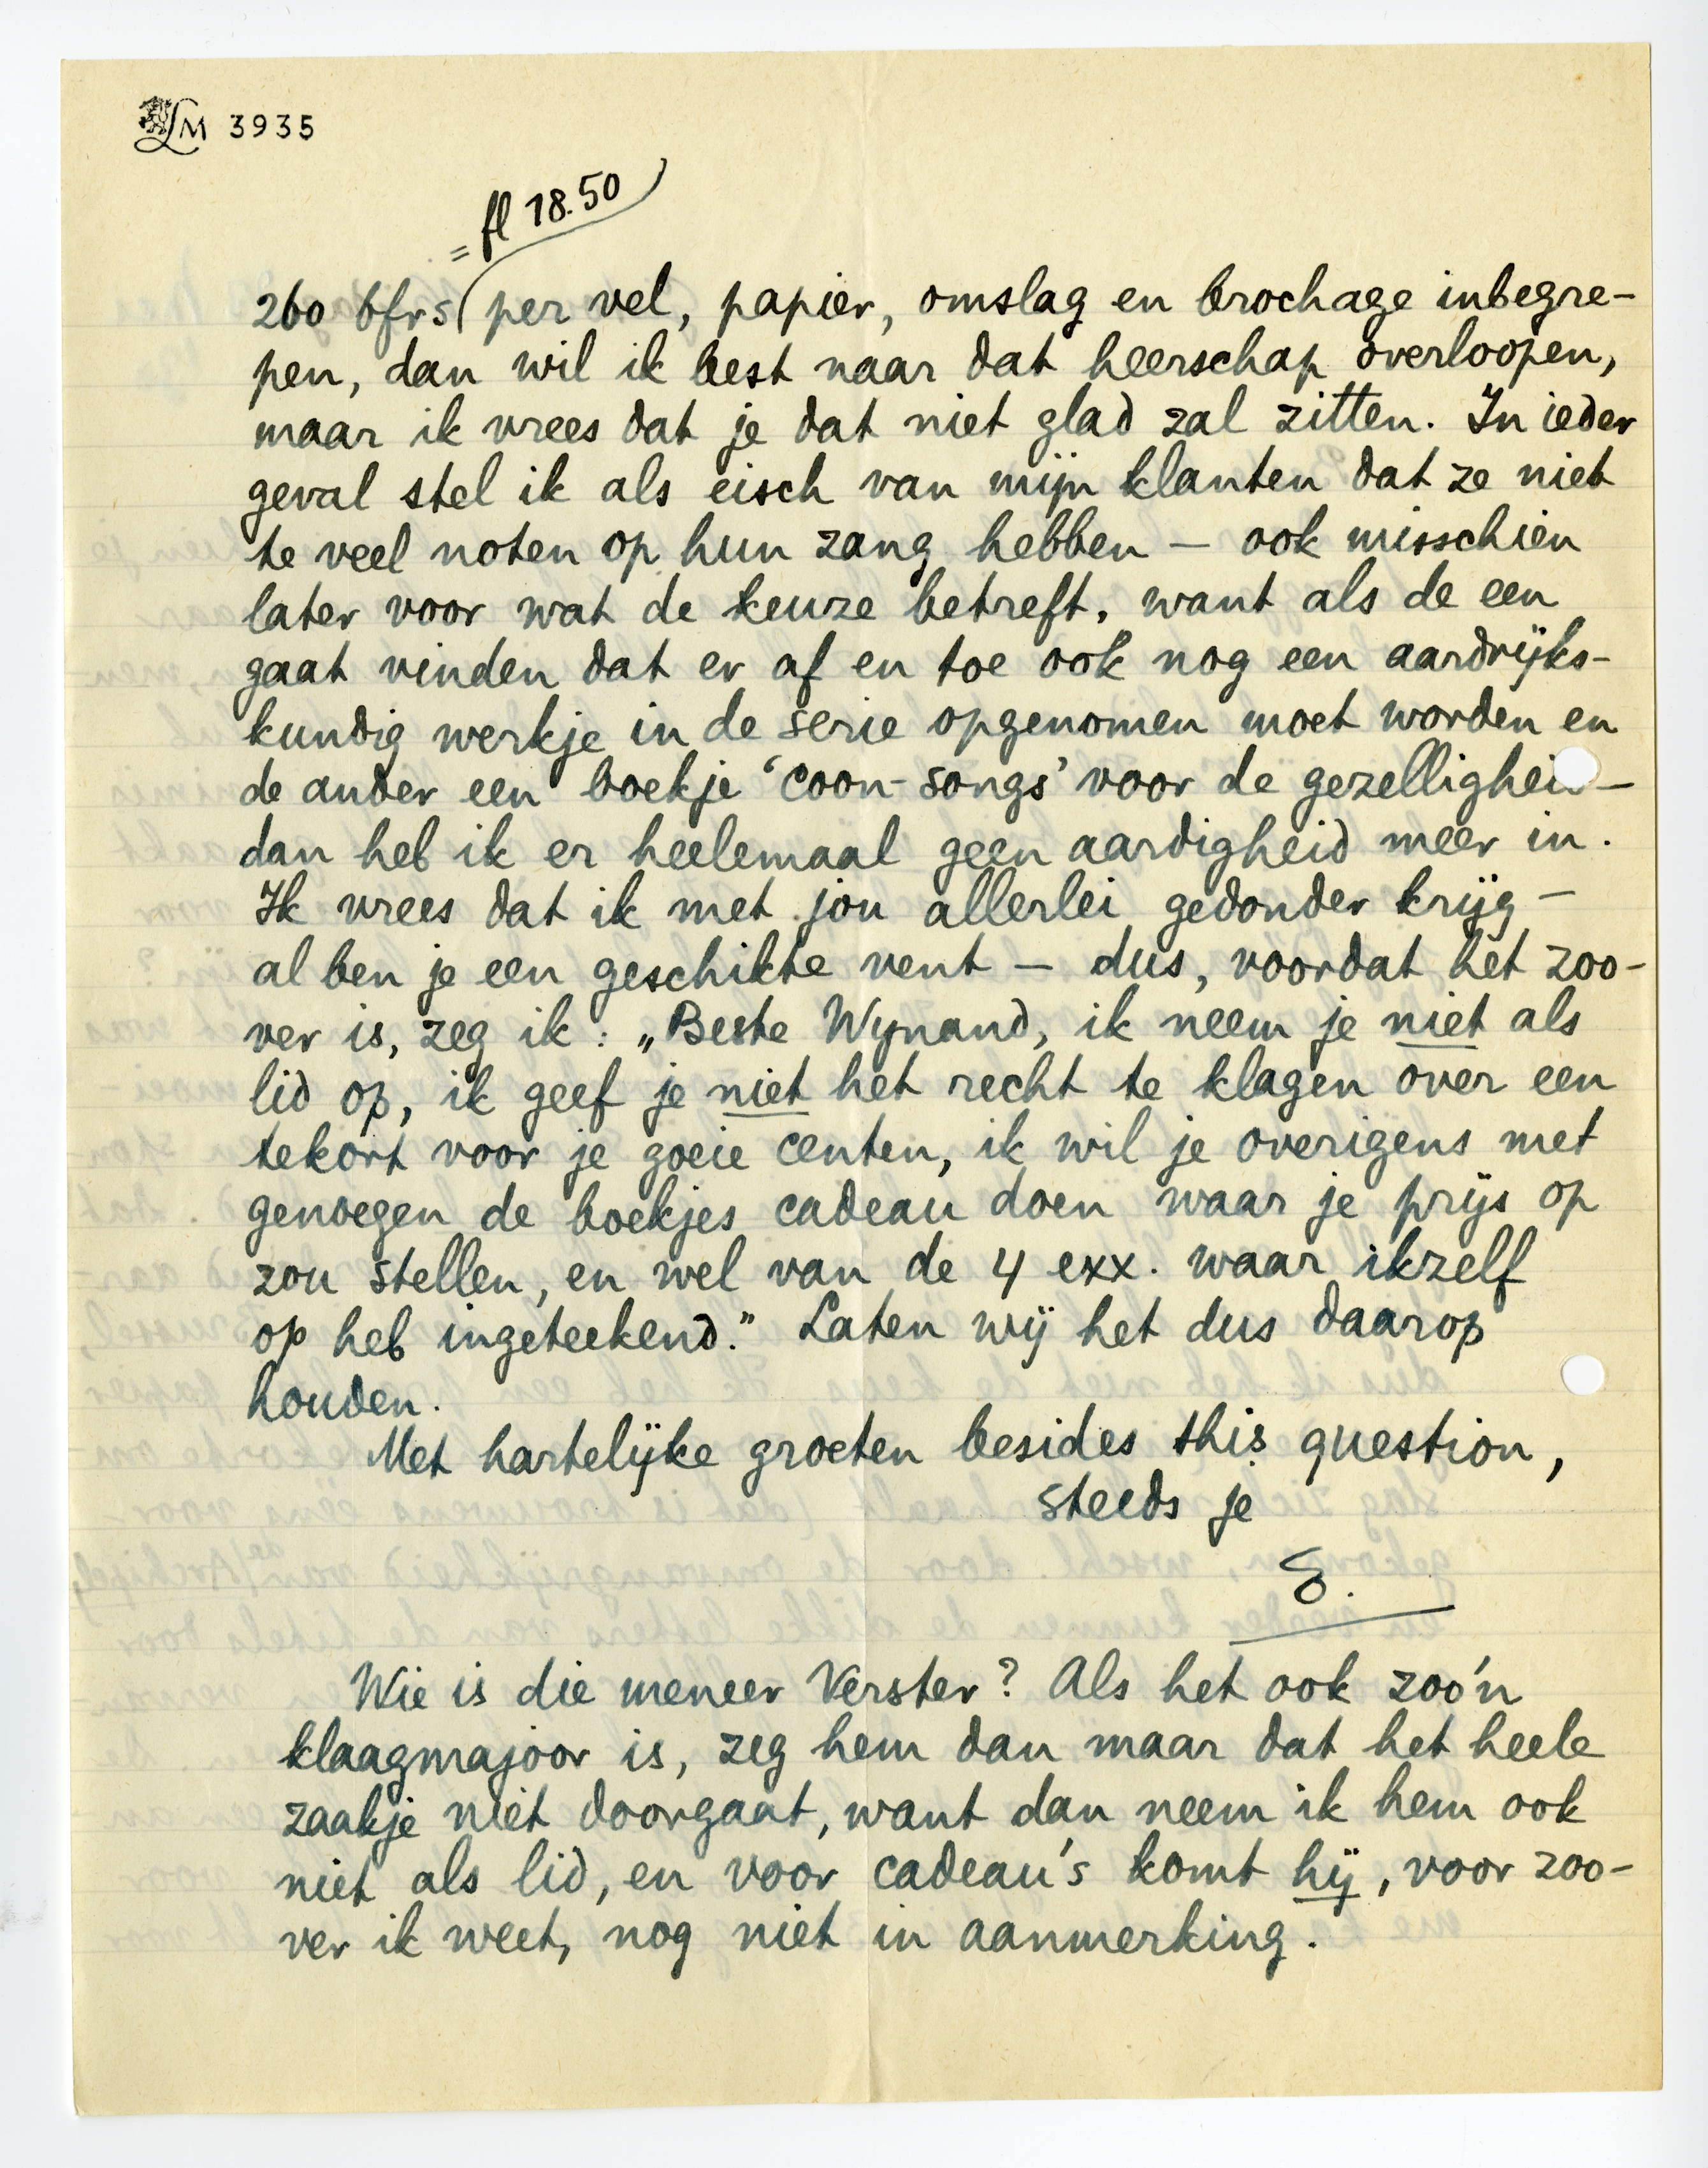 LM 3935
= fl 18.50
260 bfrs per vel, papier, omslag en brochage inbegre-
pen, dan wil ik best naar dat heerschap overloopen,
maar ik vrees dat je dat niet glad zal zitten. In ieder
geval stel ik als eisch van mijn klanten dat ze niet
te veel noten op hun zang hebben — ook misschien
later voor wat de keuze betreft, want als de een
gaat vinden dat er af en toe ook nog een aardrijks-
kundig werkje in de serie opgenomen moet worden en
de ander een boekje ‘coon-songs’ voor de gezelligheid —
dan heb ik er heelemaal geen aardigheid meer in.
Ik vrees dat ik met jou allerlei gedonder krijg —
al ben je een geschikte vent — dus, voordat het zoo-
ver is, zeg ik: „Beste Wynand, ik neem je niet als
lid op, ik geef je niet het recht te klagen over een
tekort voor je goeie centen, ik wil je overigens met
genoegen de boekjes cadeau doen waar je prijs op
zou stellen, en wel van de 4 exx. waar ikzelf
op heb ingeteekend.” Laten wij het dus daarop
houden.
Met hartelijke groeten besides this question,
steeds je
E.
Wie is die meneer Verster? Als het ook zoo'n
klaagmajoor is, zeg hem dan maar dat het heele
zaakje niet doorgaat, want dan neem ik hem ook
niet als lid, en voor cadeau's komt hij, voor zoo-
ver ik weet, nog niet in aanmerking.